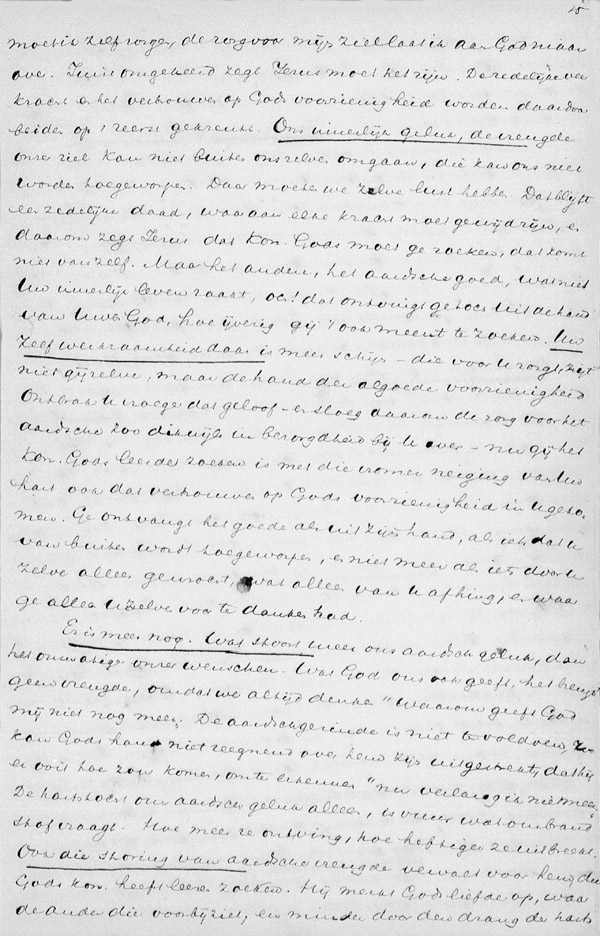 15
moet ik zelf zorgen, de zorg voor mijn ziel laat ik aan God maar
over. Juist omgekeerd zegt Jezus moet het zijn. De zedelijke
kracht en het vertrouwen op Gods voorzienigheid worden daardoor
beiden op 't zeerst gekrenkt. Ons innerlijk geluk, de vreugde
onzer ziel kan niet buiten ons zelve omgaan, die kan ons niet
worden toegeworpen. Daar moeten we zelve lust hebben. Dat blijft
een zedelijke daad, waaraan elke kracht moet gewijd zijn, en
daarom zegt Jezus dat Kon. Gods moet ge zoeken, dat komt
niet van zelf. Maar het andere, het aardsche goed, wat niet
Uw innerlijk leven raakt, och! dat ontvangt ge toch uit de hand
van Uwen God, hoe ijverig gij 't ook meent te zoeken. Uw
zelfwerkzaamheid daar is meer schijn - die voor U zorgt, zijt
niet gij zelve, maar de hand der algoede voorzienigheid
Ontbrak U vroeger dat geloof - en sloeg daarom de zorg voor het
aardsche zoo dikwijls in bezorgdheid bij U over - nu gij het
Kon. Gods leerde zoeken is met die vromer neiging van Uw
hart ook dat vertrouwen op Gods voorzienigheid in U geko-
men. Ge ontvangt het goede als uit zijn hand, als iets dat U
van buiten wordt toegeworpen, en niet meer als iets door U
zelve alleen gewrocht, wat alleen van U afhing, en waar
ge alleen U zelve voor te danken had.
Er is meer nog. Wat stoort meer ons aardsch geluk, dan
het onmatige onzer wenschen. Wat God ons ook geeft, het brengt
geen vreugde, omdat we altijd denken "Waarom geeft God
mij niet nog meer". De aardschgezinde is niet te voldoen,
kan Gods hand niet zegenend over hem zijn uitgestrekt, dat hij
er ooit toe zou komen, om te erkennen "nu verlang ik niet meer"
De hartstocht om aardsch geluk alleen, is vuur wat om brand
stof vraagt. Hoe meer ze ontving, hoe heftiger ze uitbreekt.
Ook die storing van aardsche vreugde verwaait voor hem, die
Gods kon. heeft leeren zoeken. Hij merkt Gods liefde op, waar
de ander die voorbijziet, en minder door den drang de harts